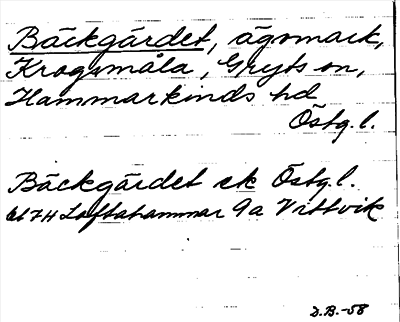 Bäckgärdet, ägomark,
Krogsmåla, Gryts sn,
Hammarkinds hd
Östg. l.
Bäckgärdet ek Östg. l.
bl 7H Loftahammar 9a Vittvik
D.B.-58